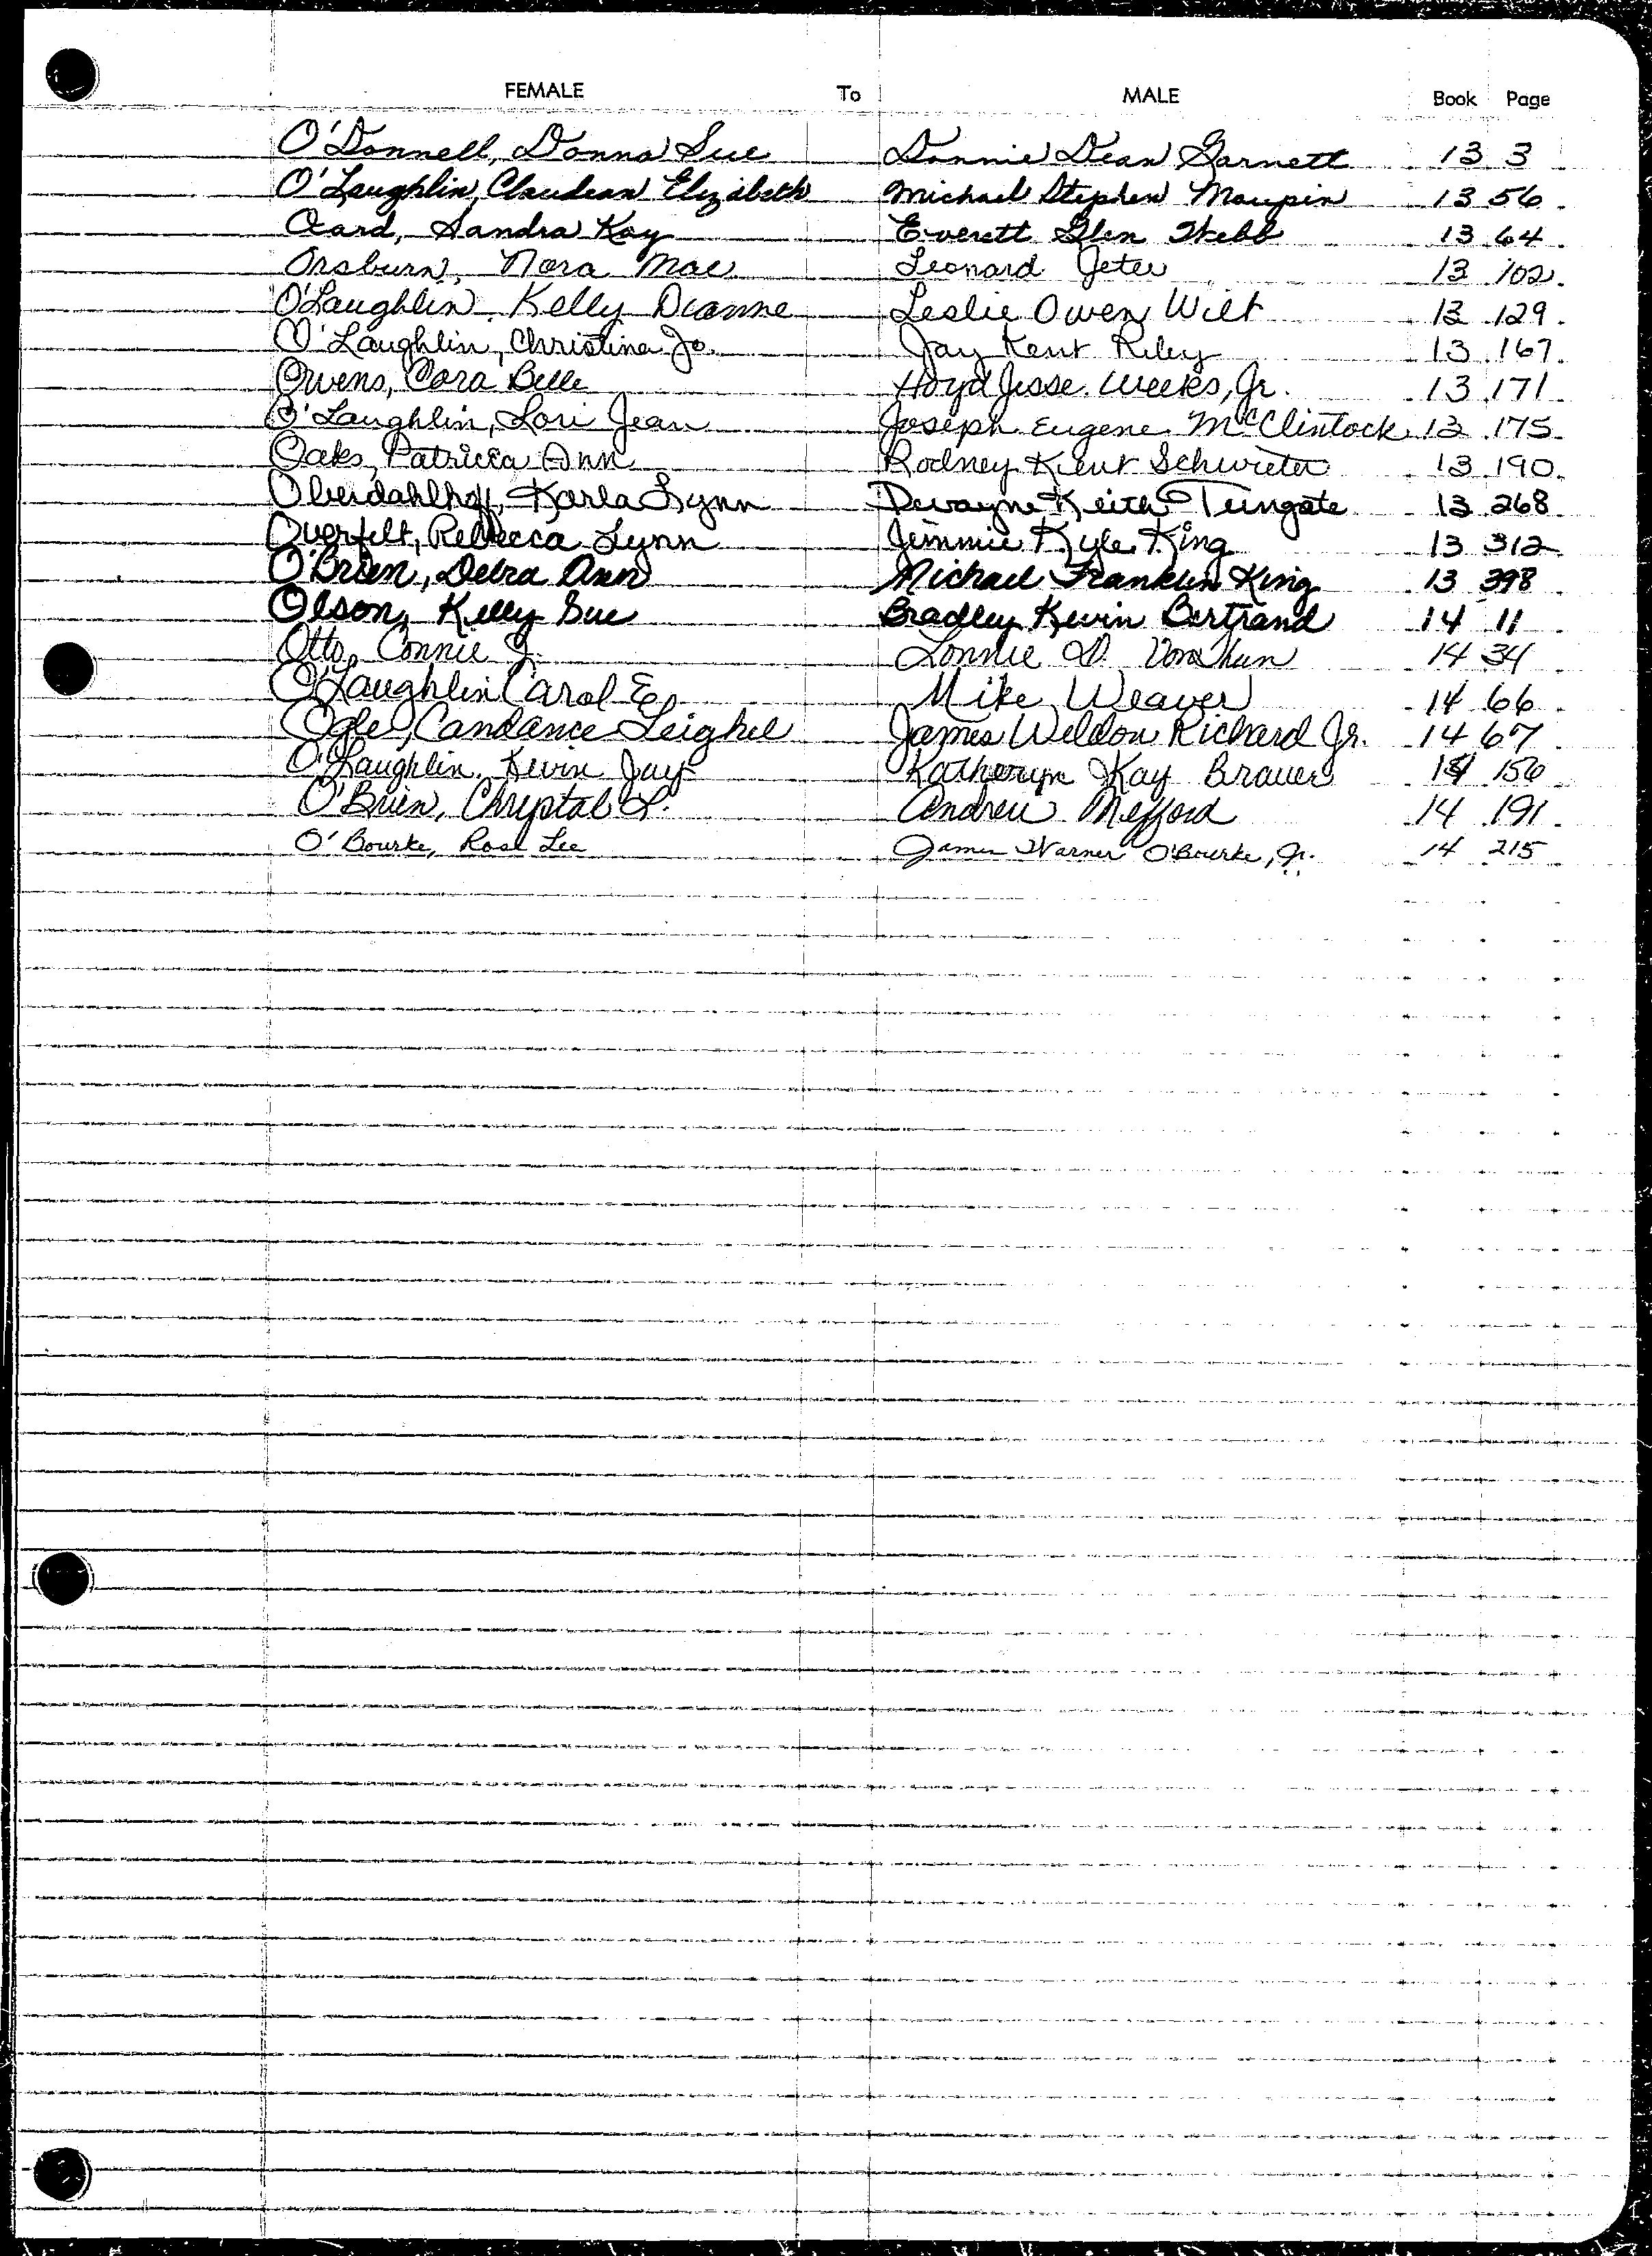 FEMALE To MALE Book Page
O'Donnell, Donna Sue Donnie Dean Garnett 13 3
O'Laughlin, Claudean Elizabeth Michael Stephen Maupin 13 56
Oard, Sandra Kay Everett Glen Webb 13 64
Orsburn, Nora Mae Leonard Jeter 13 102
O'Laughlin, Kelly Dianne Leslie Owen Wilt 13 129
O'Laughlin, Christina Jo. Jay Kent Riley 13 167
Owens, Cora Belle Hoyd Jesse Weeks, Jr. 13 171
O'Laughlin, Lori Jean Joseph Eugene McClintock 13 175
Oaks, Patricia Ann Rodney Kent Schwieter 13 190
Oberdahlhoff, Karla Lynn Dewayne Keith Tungate 13 268
Overfelt, Rebecca Lynn Jimmie Kyle King 13 312
O'Brien, Debra Ann Michael Franklin King 13 398
Olson, Kelly Sue Bradley Kevin Bertrand 14 11
Otto, Connie J. Lonnie D. 14 34
O'Laughlin Carol E. Mike Weaver 14 66
Ogle, Candance Leighel James Weldon Richard Jr. 14 67
O'Laughlin, Kevin Jay Katheryn Kay Brauer 14 156
O'Brien, Chrystal L. Andrew Mefford 14 191
O'Bourke, Rose Lee James Warner O'Bourke, Jr. 14 215